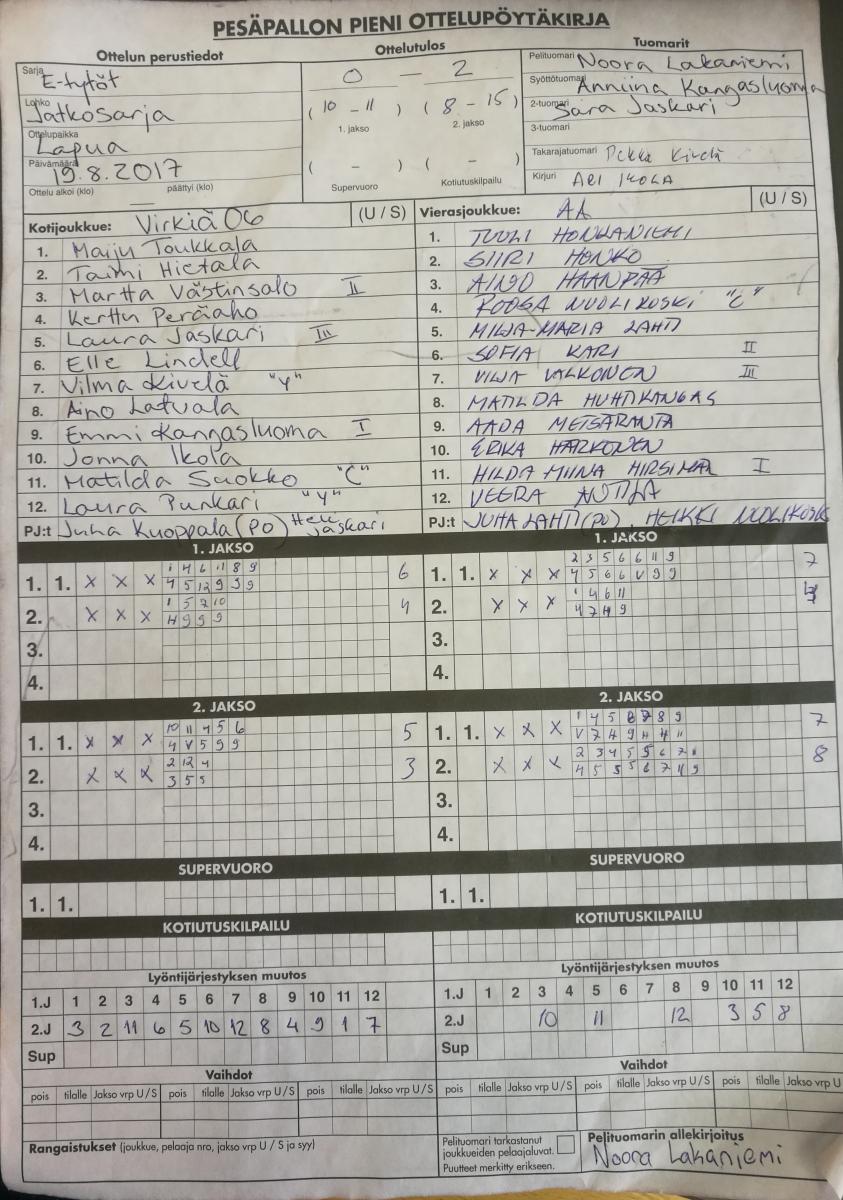 PESÄPALLON PIENI OTTELUPÖYTÄKIRJA
Ottelun perustiedot
Sarja E-tytöt
Lohko Jatkosarja
Ottelupaikka Lapua
Päivämäärä 19.8.2017
Ottelu alkoi (klo) päättyi (klo)
Ottelutulos
0 – 2
( 10 - 11 ) ( 8 - 15 )
1. jakso 2. jakso
( - ) ( - )
Supervuoro Kotiutuskilpailu
Tuomarit
Pelituomari Noora Lakaniemi
Syöttötuomari Anniina Kangasluoma
2-tuomari Sara Jaskari
3-tuomari
Takarajatuomari Pekka Kivelä
Kirjuri ARI IKOLA
Kotijoukkue: Virkiä 06 (U / S)
1. Maiju Toukkala
2. Taimi Hietala
3. Martta Västinsalo II
4. Kerttu Peräaho
5. Laura Jaskari III
6. Elle Lindell
7. Vilma Kivelä "Y"
8. Aino Latvala
9. Emmi Kangasluoma I
10. Jonna Ikola
11. Matilda Suokko "C"
12. Laura Punkari "Y"
PJ:t Juha Kuoppala (PO) Heli Jaskari
Vierasjoukkue: AA (U / S)
1. TUULI HONKANIEMI
2. SIIRI HONKO
3. AINO HAANPÄÄ
4. ROOSA NUOLIKOSKI "C"
5. MILJA-MARIA LAHTI
6. SOFIA KARI II
7. VILJA VALKONEN III
8. MATILDA HUHTIKANGAS
9. AADA METSÄRANTA
10. ERIKA HÄRKÖNEN
11. HILDA MIINA I
12. VEERA ANTILA
PJ:t JUHA LAHTI (PO), HEIKKI NUOLIKOSKI
1. JAKSO
1. 1. x x x 1 4 6 11 8 9 6
4 5 12 9 9 9
2. x x x 1 5 7 10 4
H 9 9 9
3.
4.
1. JAKSO
1. 1. x x x 2 3 5 6 6 11 9 7
4 5 6 6 V 9 9
2. x x x 1 4 6 11
4 7 H 9
3.
4.
2. JAKSO
1. 1. x x x 10 11 4 5 6 5
4 V 5 9 9
2. x x x 2 12 4 3
3 5 5
3.
4.
2. JAKSO
1. 1. x x x 1 4 5 8 9 7
V 7 H 9
2. x x x 2 3 4 5 5 6 7 8
4 5 5 5 6 7 11 9
3.
4.
SUPERVUORO
1. 1.
SUPERVUORO
1. 1.
KOTIUTUSKILPAILU
KOTIUTUSKILPAILU
Lyöntijärjestyksen muutos
1.J 1 2 3 4 5 6 7 8 9 10 11 12
2.J 3 2 11 6 5 10 12 8 4 9 1 7
Sup
Lyöntijärjestyksen muutos
1.J 1 2 3 4 5 6 7 8 9 10 11 12
2.J 10 11 12 3 5 8
Sup
Vaihdot
pois tilalle Jakso vrp U / S pois tilalle Jakso vrp U / S pois tilalle Jakso vrp U / S
Vaihdot
pois tilalle Jakso vrp U / S pois tilalle Jakso vrp U / S pois tilalle Jakso vrp U
Rangaistukset (joukkue, pelaaja nro, jakso vrp U / S ja syy)
Pelituomari tarkastanut
joukkueiden pelaajaluvat.
Puutteet merkitty erikseen.
Pelituomarin allekirjoitus
Noora Lakaniemi